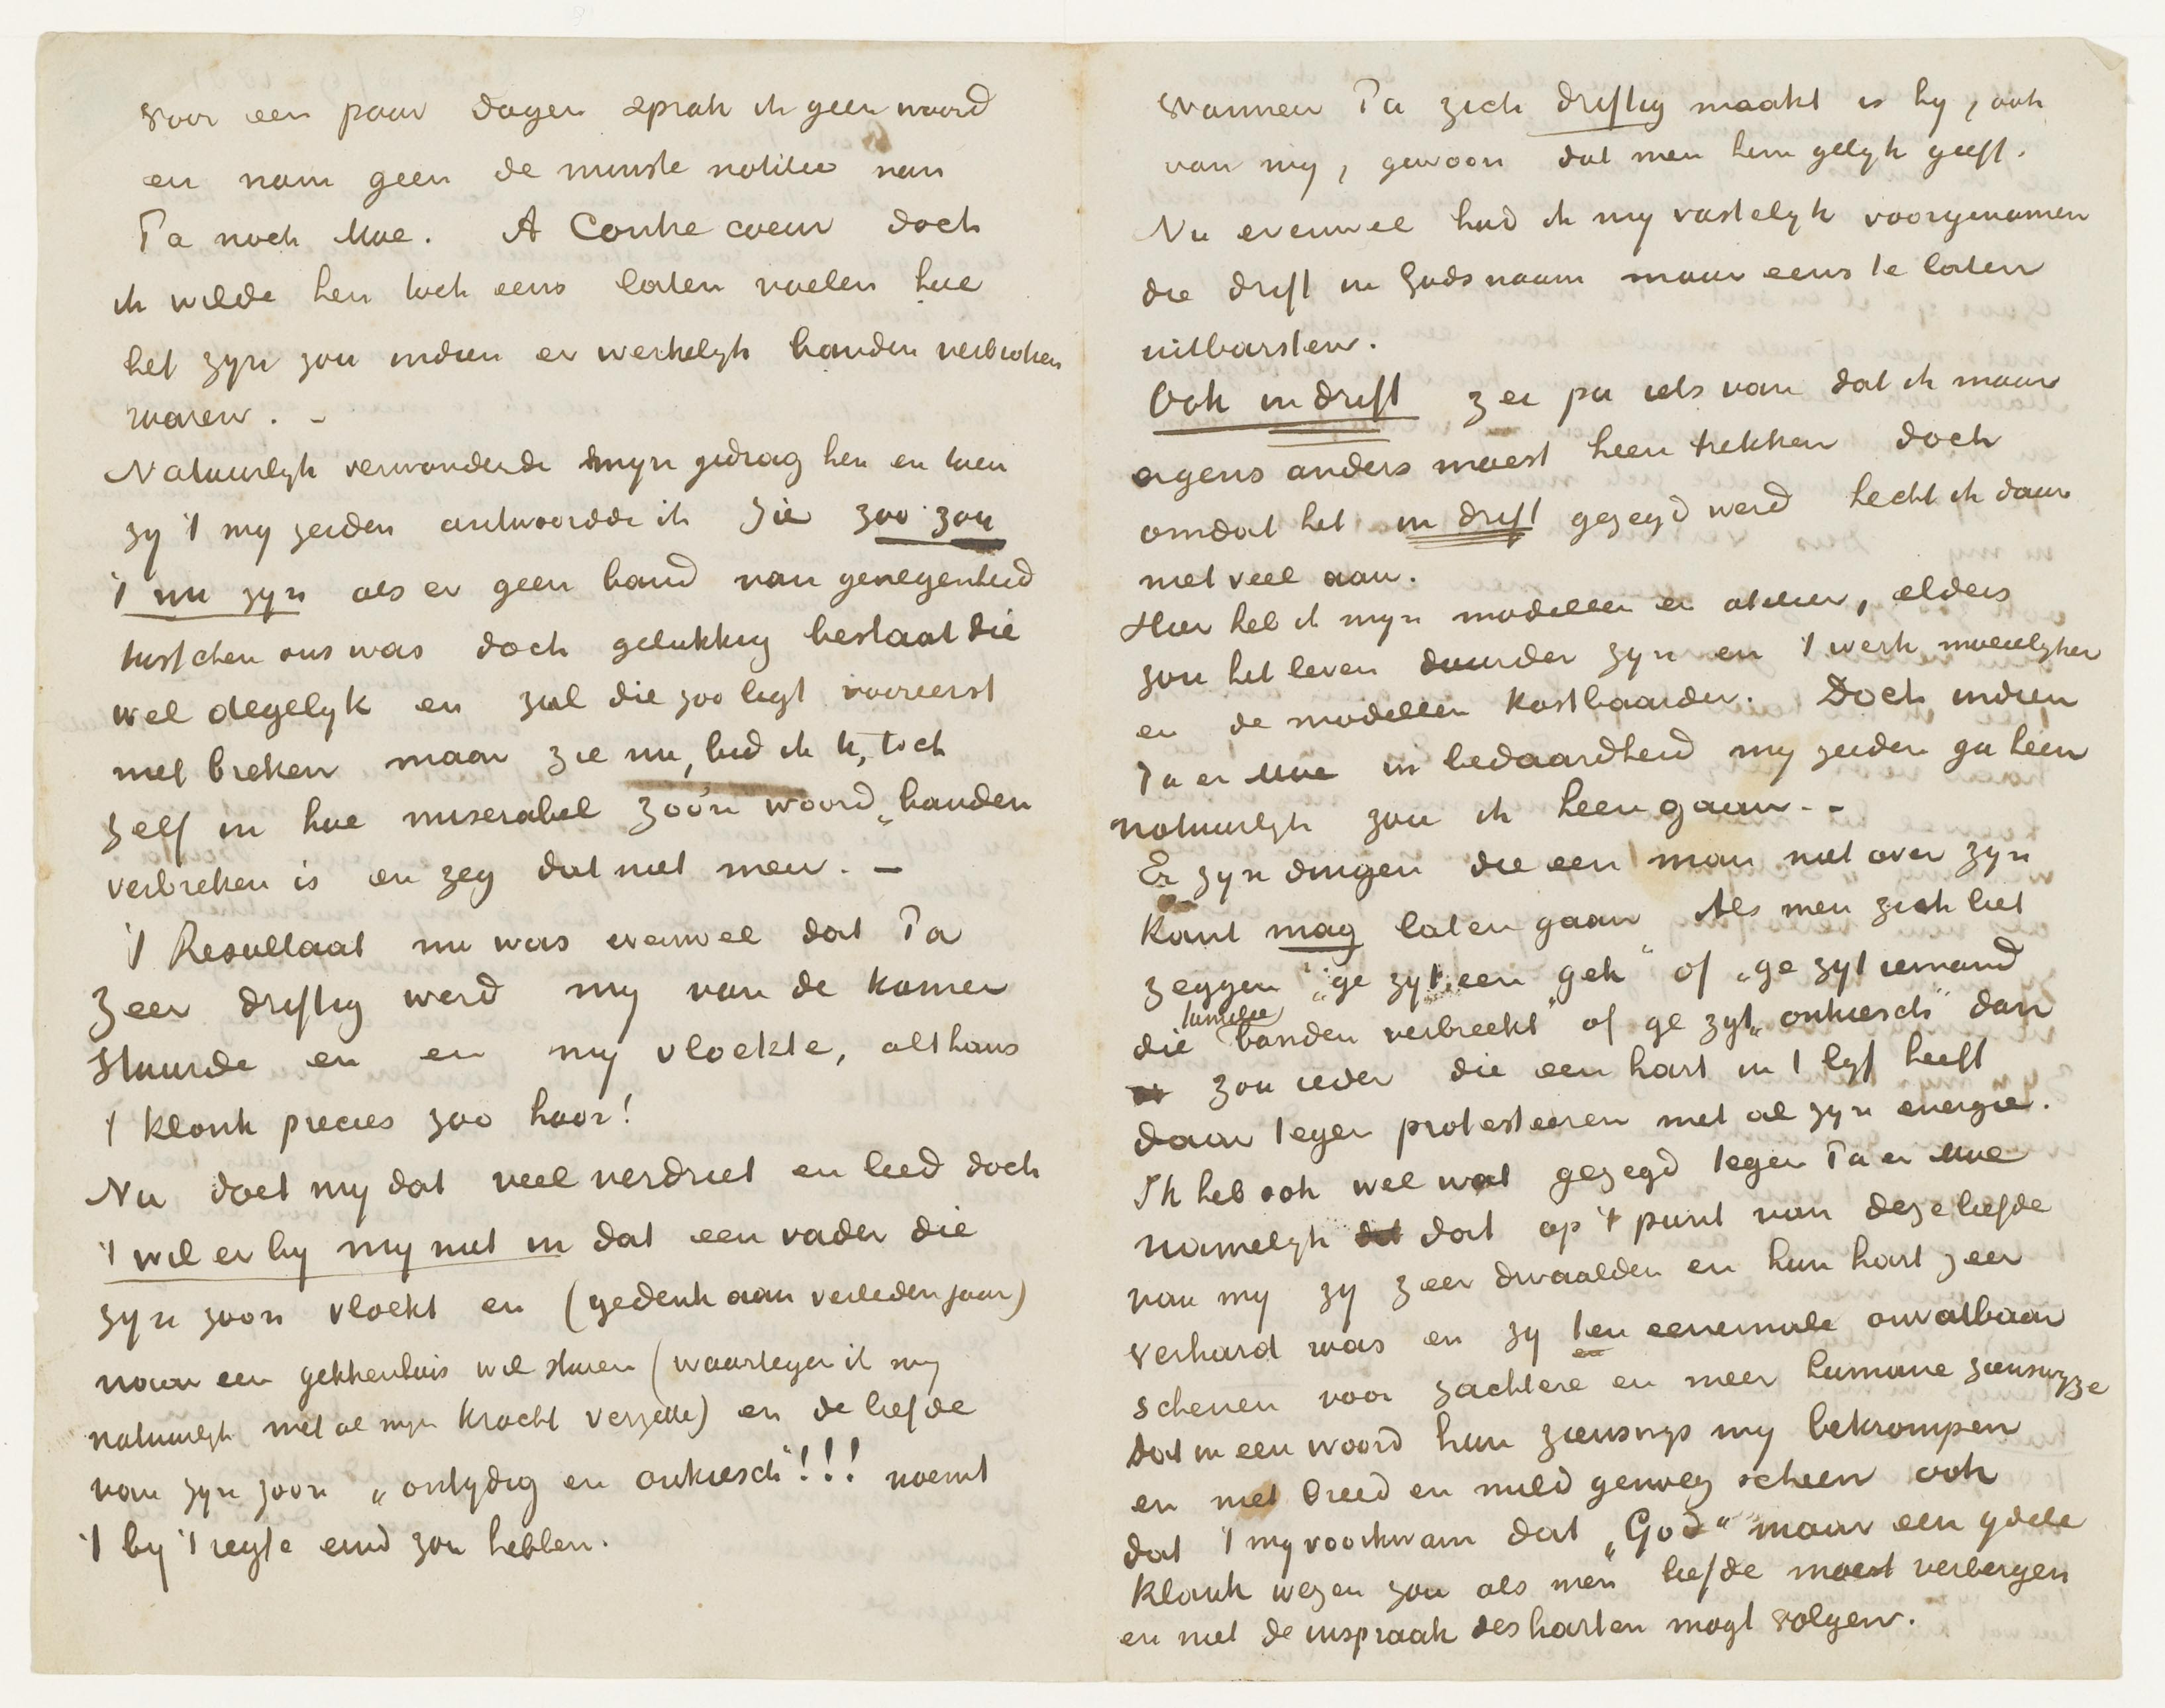 voor een paar dagen sprak ik geen woord
en nam geen de minste notitie van
Pa noch Moe. A Contre coeur doch
ik wilde hen toch eens laten voelen hoe
het zyn zou indien er werkelyk banden verbroken
waren. –
Natuurlyk verwonderde myn gedrag hen en toen
zy 't my zeiden antwoordde ik Zie zoo zou
't nu zyn als er geen band van genegenheid
tusschen ons was doch gelukkig bestaat die
wel degelyk en zal die zoo ligt vooreerst
niet breken maar zie nu, bid ik U, toch
zelf in hoe miserabel zoo'n woord „banden
verbreken is en zeg dat niet meer. –
't Resultaat nu was evenwel dat Pa
zeer driftig werd my van de kamer
stuurde en en my vloekte, althans
't klonk precies zoo hoor!
Nu doet my dat veel verdriet en leed doch
't wil er by my niet in dat een vader die
zyn zoon vloekt en (gedenk aan verleden jaar)
naar een gekkenhuis wil sturen (waartegen ik my
natuurlyk met al myn kracht verzette) en de liefde
van zyn zoon „ontydig en onkiesch"!!! noemt
't by 't regte eind zou hebben.
Wanneer Pa zich driftig maakt is hy, ook
van my, gewoon dat men hem gelyk geeft.
Nu evenwel had ik my vastelyk voorgenomen
die drift in Gods naam maar eens te laten
uitbarsten.
Ook in drift zei pa iets van dat ik maar
ergens anders moest heen trekken doch
omdat het in drift gezegd werd hecht ik daar
niet veel aan.
Hier heb ik myn modellen en atelier, elders
zou het leven duurder zyn en 't werk moeielyker
en de modellen kostbaarder. Doch indien
Pa en Moe in bedaardheid my zeiden ga heen
natuurlyk zou ik heen gaan. –
Er zyn dingen die een man niet over zyn
kant mag laten gaan Als men zich liet
zeggen „ge zyt een gek" of „ge zyt iemand
die familie banden verbreekt" of ge zyt „onkiesch" dan
zou ieder die een hart in 't lyf heeft
daar tegen protesteeren met al zyn energie.
Ik heb ook wel wat gezegd tegen Pa en Moe
namelyk dat dat op 't punt van deze liefde
van my zy zeer dwaalden en hun hart zeer
verhard was en zy ten eenenmale onvatbaar
schenen voor zachtere en meer humane zienswyze
dat in een woord hun zienswys my bekrompen
en niet breed en mild genoeg scheen ook
dat 't my voorkwam dat „God" maar een ydele
klank wezen zou als men liefde moest verbergen
en niet de inspraak des harten mogt volgen.